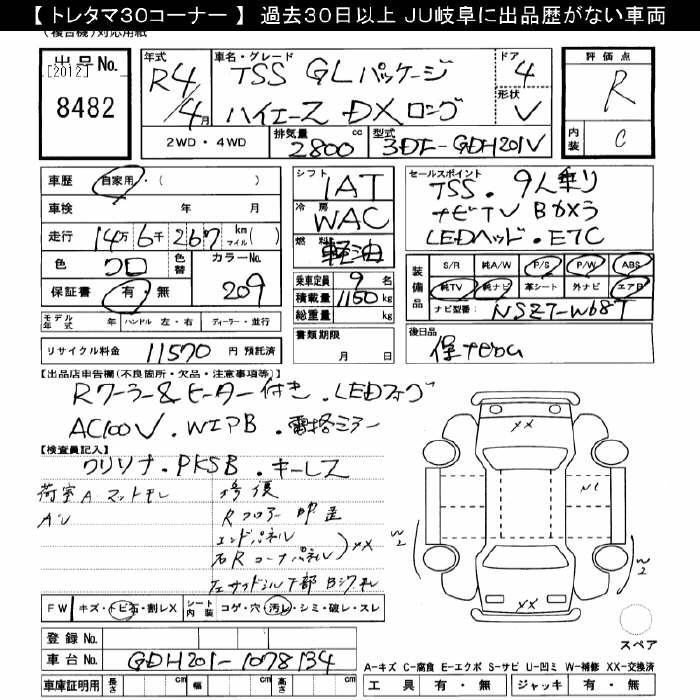 【 トレタマ30コーナー 】 過去30日以上 JU岐阜に出品歴がない車両
(複合機)対応用紙
出品No.
[2012]
8482
年式 R4/4月
車名・グレード TSS GLパッケージ
ハイエース DXロング
ドア 4
形状 V
2WD・4WD
排気量 2800 cc
型式 3DF-GDH201V
評価点
R
内装 C
車歴 自家用・( )
車検 年 月
走行 14万 6千 267 km マイル( )
色 クロ 色替 カラーNo. 209
保証書 有・無
シフト IAT
冷房 WAC
燃料 軽油
乗車定員 9名
積載量 1150kg
総重量 kg
書類期限
月 日
セールスポイント
TSS・9人乗り
ナビTV Bカメラ
LEDヘッド・ETC
装備品 S/R 純A/W P/S P/W ABS
純TV 純ナビ 革シート 外ナビ エアB
ナビ型番: NSZT-W68T
後日品
モデル年式 年 ハンドル 左・右 ディーラー・並行
リサイクル料金 11570 円 預託済
【出品店申告欄(不良箇所・欠品・注意事項等)】
Rクーラー&ヒーター付き・LEDフォグ
AC100V・WエアB・電格ミラー
【検査員記入】
クリソナ・PKSB・キーレス
荷室A マットモレ
修復
Rフロアー
エンドパネル
右Rコーナパネル) XX
左サイドシル下部
XX
W2
W2
XX
FW キズ・トビ石・割レX シート内装 コゲ・穴・汚レ・シミ・破レ・スレ
登録No.
車台No. GDH201-1078134
車庫証明用 長さ cm 幅 cm 高さ cm
スペア
A-キズ C-腐食 E-エクボ S-サビ U-凹ミ W-補修 XX-交換済
工具 有・無 ジャッキ 有・無